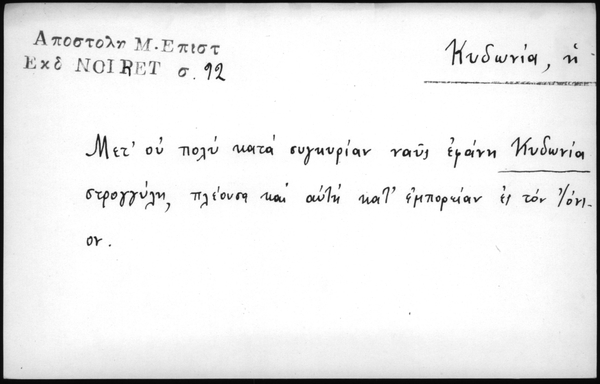 Αποστολη Μ. Επιστ
Εκδ NOIRET σ. 92
Κυδωνία, ἡ
Μετ' οὐ πολύ κατά συγκυρίαν ναῦς ἐφάνη Κυδωνία
στρογγύλη, πλέουσα καί αὐτή κατ' ἐμπορείαν ἐς τόν Ἰόνι-
ον.